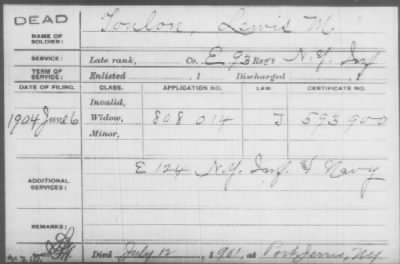 DEAD
NAME OF SOLDIER: Toulon, Lewis M.
SERVICE: Late rank, Co. E 93 Reg't N.Y. Inf
TERM OF SERVICE: Enlisted , 1 Discharged , 1
DATE OF FILING. CLASS. APPLICATION NO. LAW. CERTIFICATE NO.
Invalid,
1904 June 6 Widow, 808 014 593 900
Minor,
ADDITIONAL SERVICES: E 124 N.Y. Inf. & Navy
REMARKS:
Died July 12, 1901, at Port Jervis, N.Y.